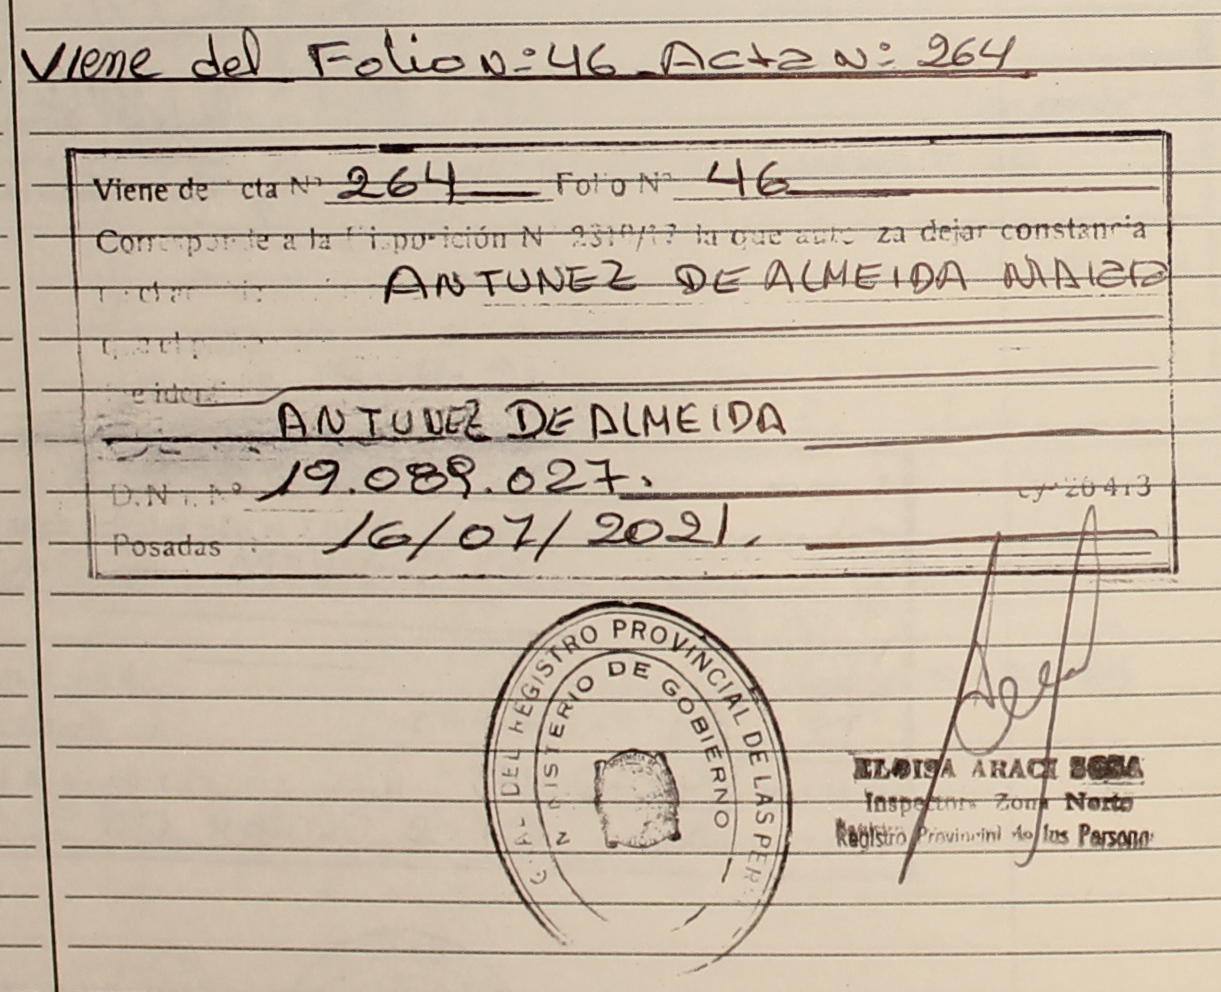 Viene del Folio N: 46 Acta N: 264
Viene de cta Nº 264 Folio Nº 46
Corresponde a la Disposición N 2310/17 la que auto za dejar constancia
ANTUNEZ DE ALMEIDA
que el
e identi
ANTUNEZ DE ALMEIDA
D.N.I. Nº 19.089.027.
Posadas : 16/07/2021.
DEL REGISTRO PROVINCIAL DE LAS PER
MINISTERIO DE GOBIERNO
ELOISA ARACI SOSA
Inspectora Zona Norte
Registro Provincial de las Persona